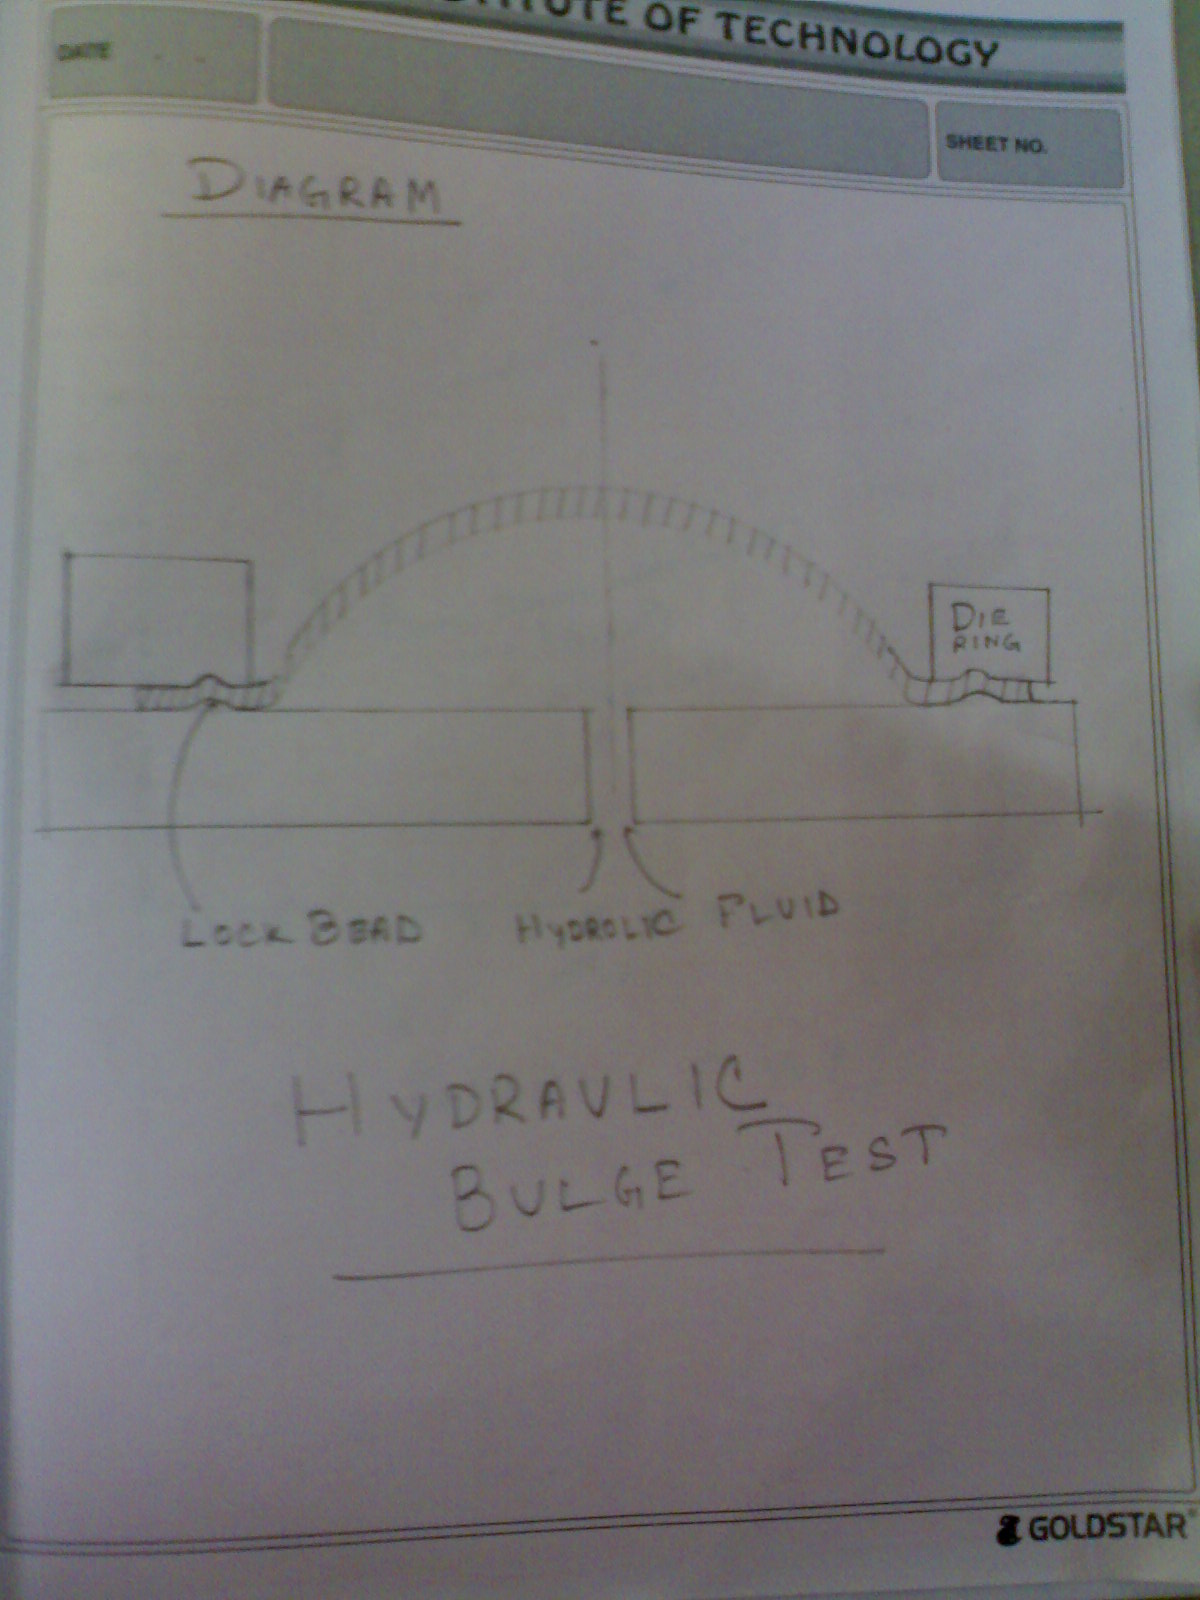 OF TECHNOLOGY
DATE
SHEET NO.
DIAGRAM
DIE
RING
LOCK BEAD HYDROLIC FLUID
HYDRAULIC
BULGE TEST
GOLDSTAR